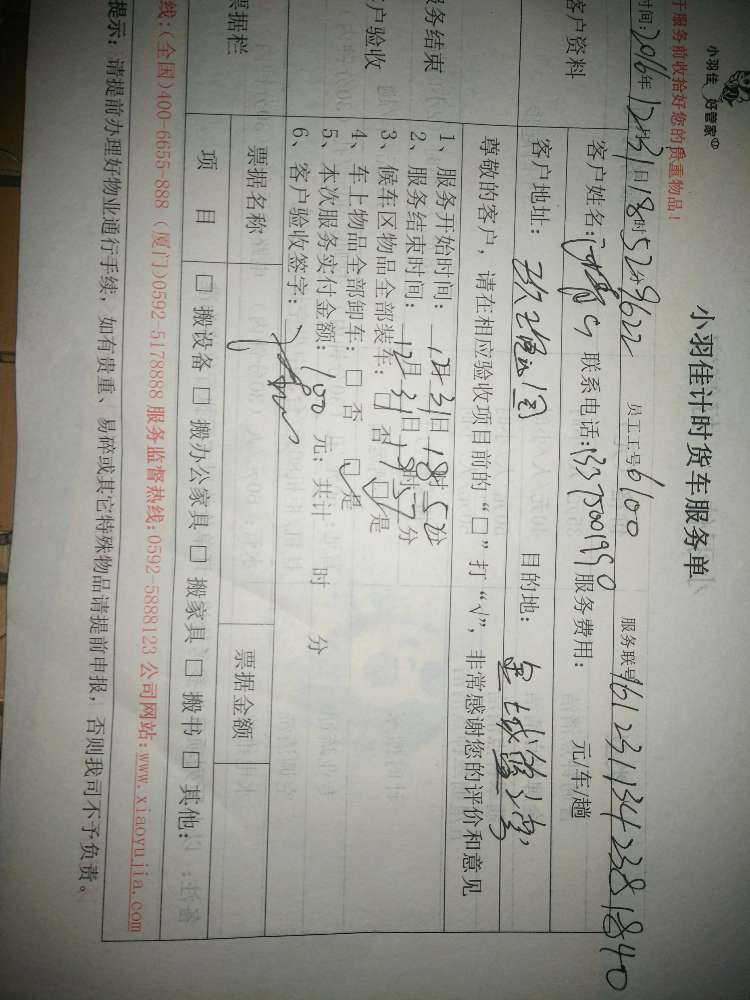 小羽佳 好管家
小羽佳计时货车服务单
于服务前收拾好您的贵重物品！
时间：2016年12月31日18时52分9622 员工工号6100 服务联号161231134238 1840
客户资料
客户姓名： 联系电话：13375001990 服务费用： 元/车/趟
客户地址： 目的地：
尊敬的客户，请在相应验收项目前的“□”打“√”，非常感谢您的评价和意见
服务结束
客户验收
1、服务开始时间：12月31日18时52分
2、服务结束时间：12月31日19时37分
3、候车区物品全部装车：□ 否 □是
4、车上物品全部卸车：□ 否 □是
5、本次服务实付金额：100 元；共计 时 分
6、客户验收签字：
票据栏
票据名称 票据金额
项 目 □ 搬设备 □ 搬办公家具 □ 搬家具 □ 搬书 □ 其他：
线：(全国)400-6655-888 (厦门)0592-5178888 服务监督热线:0592-5888123 公司网站:www.xiaoyujia.com
提示：请提前办理好物业通行手续，如有贵重、易碎或其它特殊物品请提前申报，否则我司不予负责。